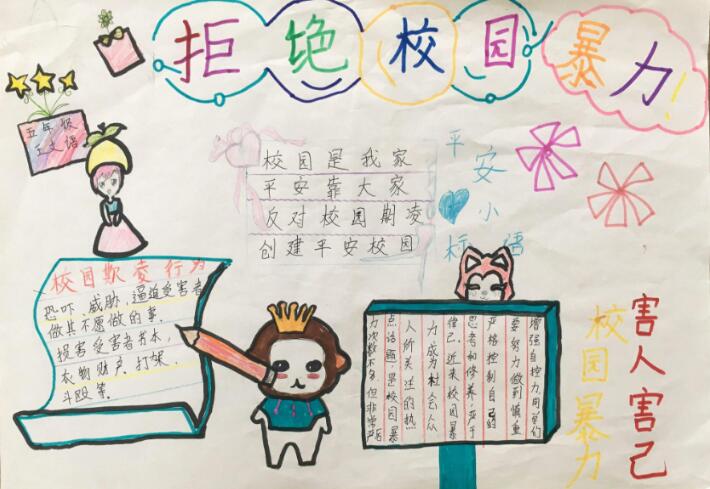 拒绝校园暴力!
五年级
王文语
校园是我家
平安靠大家
反对校园欺凌
创建平安校园
平安小
标语
校园欺凌行为
恐吓、威胁、逼迫受害者
做其不愿做的事.
损害受害者书本,
衣物财产.打架.
斗殴等.
增强自控力,同学们
要努力做到慎重
严格控制自己的
忍者和修养,严于
律己.近来校园暴
力成为社会众
人所关注的热
点话题,是校园暴
力次数不多,但非常严
害人害己
校园暴力